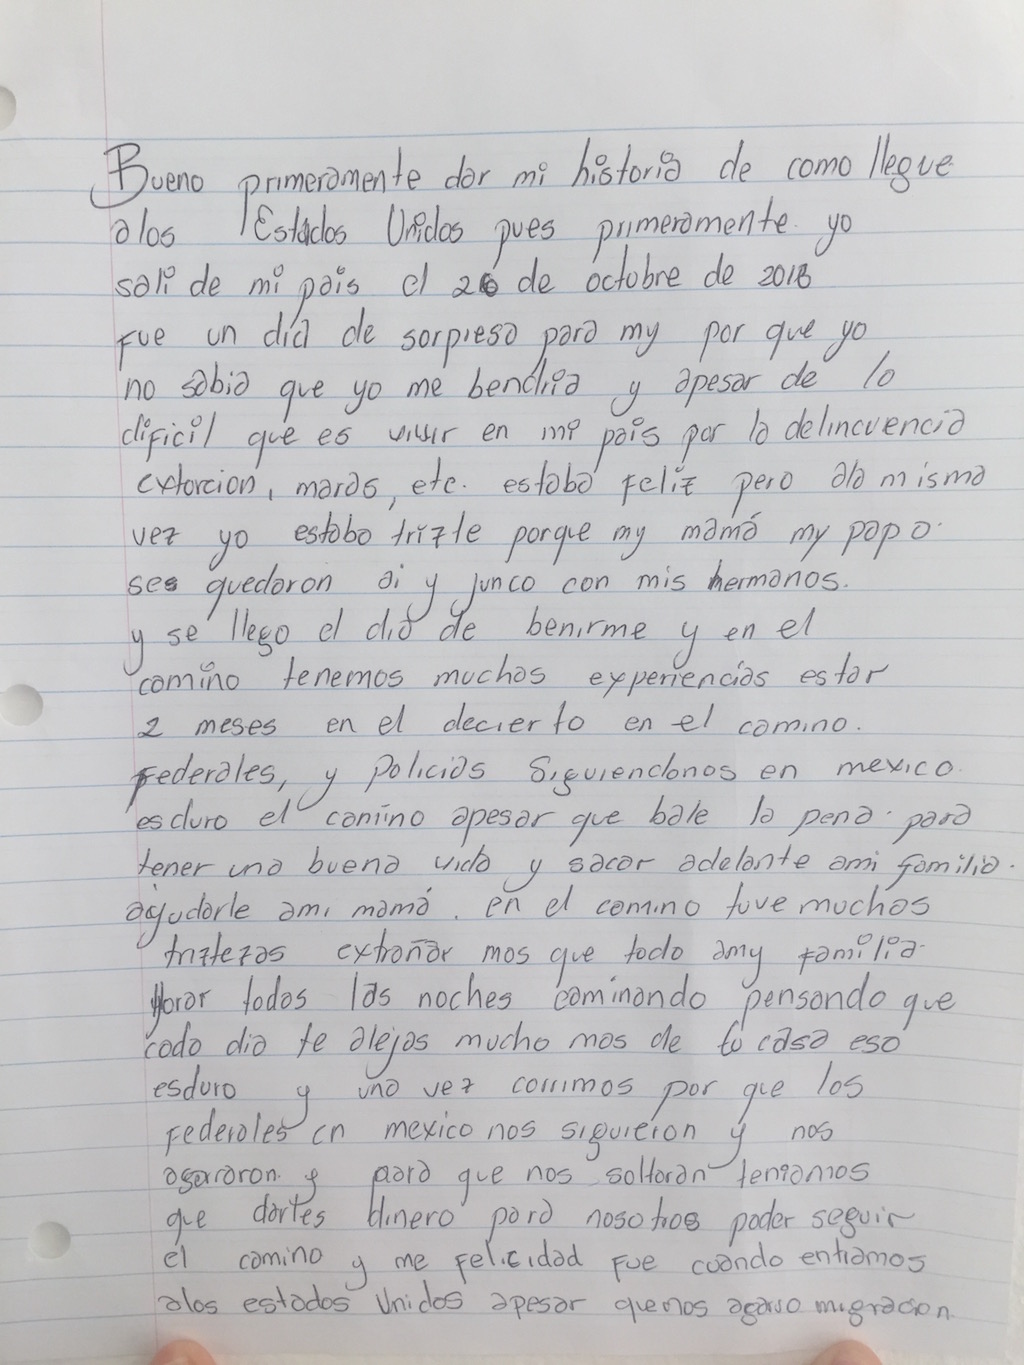 Bueno primeramente dar mi historia de como llegue
alos Estados Unidos pues primeramente yo
sali de mi pais el 26 de octubre de 2018
fue un dia de sorpresa para my por que yo
no sabia que yo me bendria y apesar de lo
dificil que es vivir en mi pais por la delincuencia
extorcion, maras, etc. estaba feliz pero ala misma
vez yo estaba trizte porque my mamá my papa
ses quedaron ai y junco con mis hermanos.
y se llego el dia de benirme y en el
camino tenemos muchas experiencias estar
2 meses en el decierto en el camino.
Federales, y policias siguiendonos en mexico
es duro el camino apesar que bale la pena para
tener una buena vida y sacar adelante ami familia.
ajudarle ami mamá. en el camino tuve muchas
triztezas extrañar mas que todo amy familia
llorar todas las noches caminando pensando que
cada dia te alejas mucho mas de tu casa eso
esduro y una vez corrimos por que los
federales en mexico nos siguieron y nos
agarraron y para que nos soltaran teniamos
que dartes dinero para nosotros poder seguir
el camino y me felicidad fue cuando entramos
alos estados Unidos apesar quenos agarro migracion